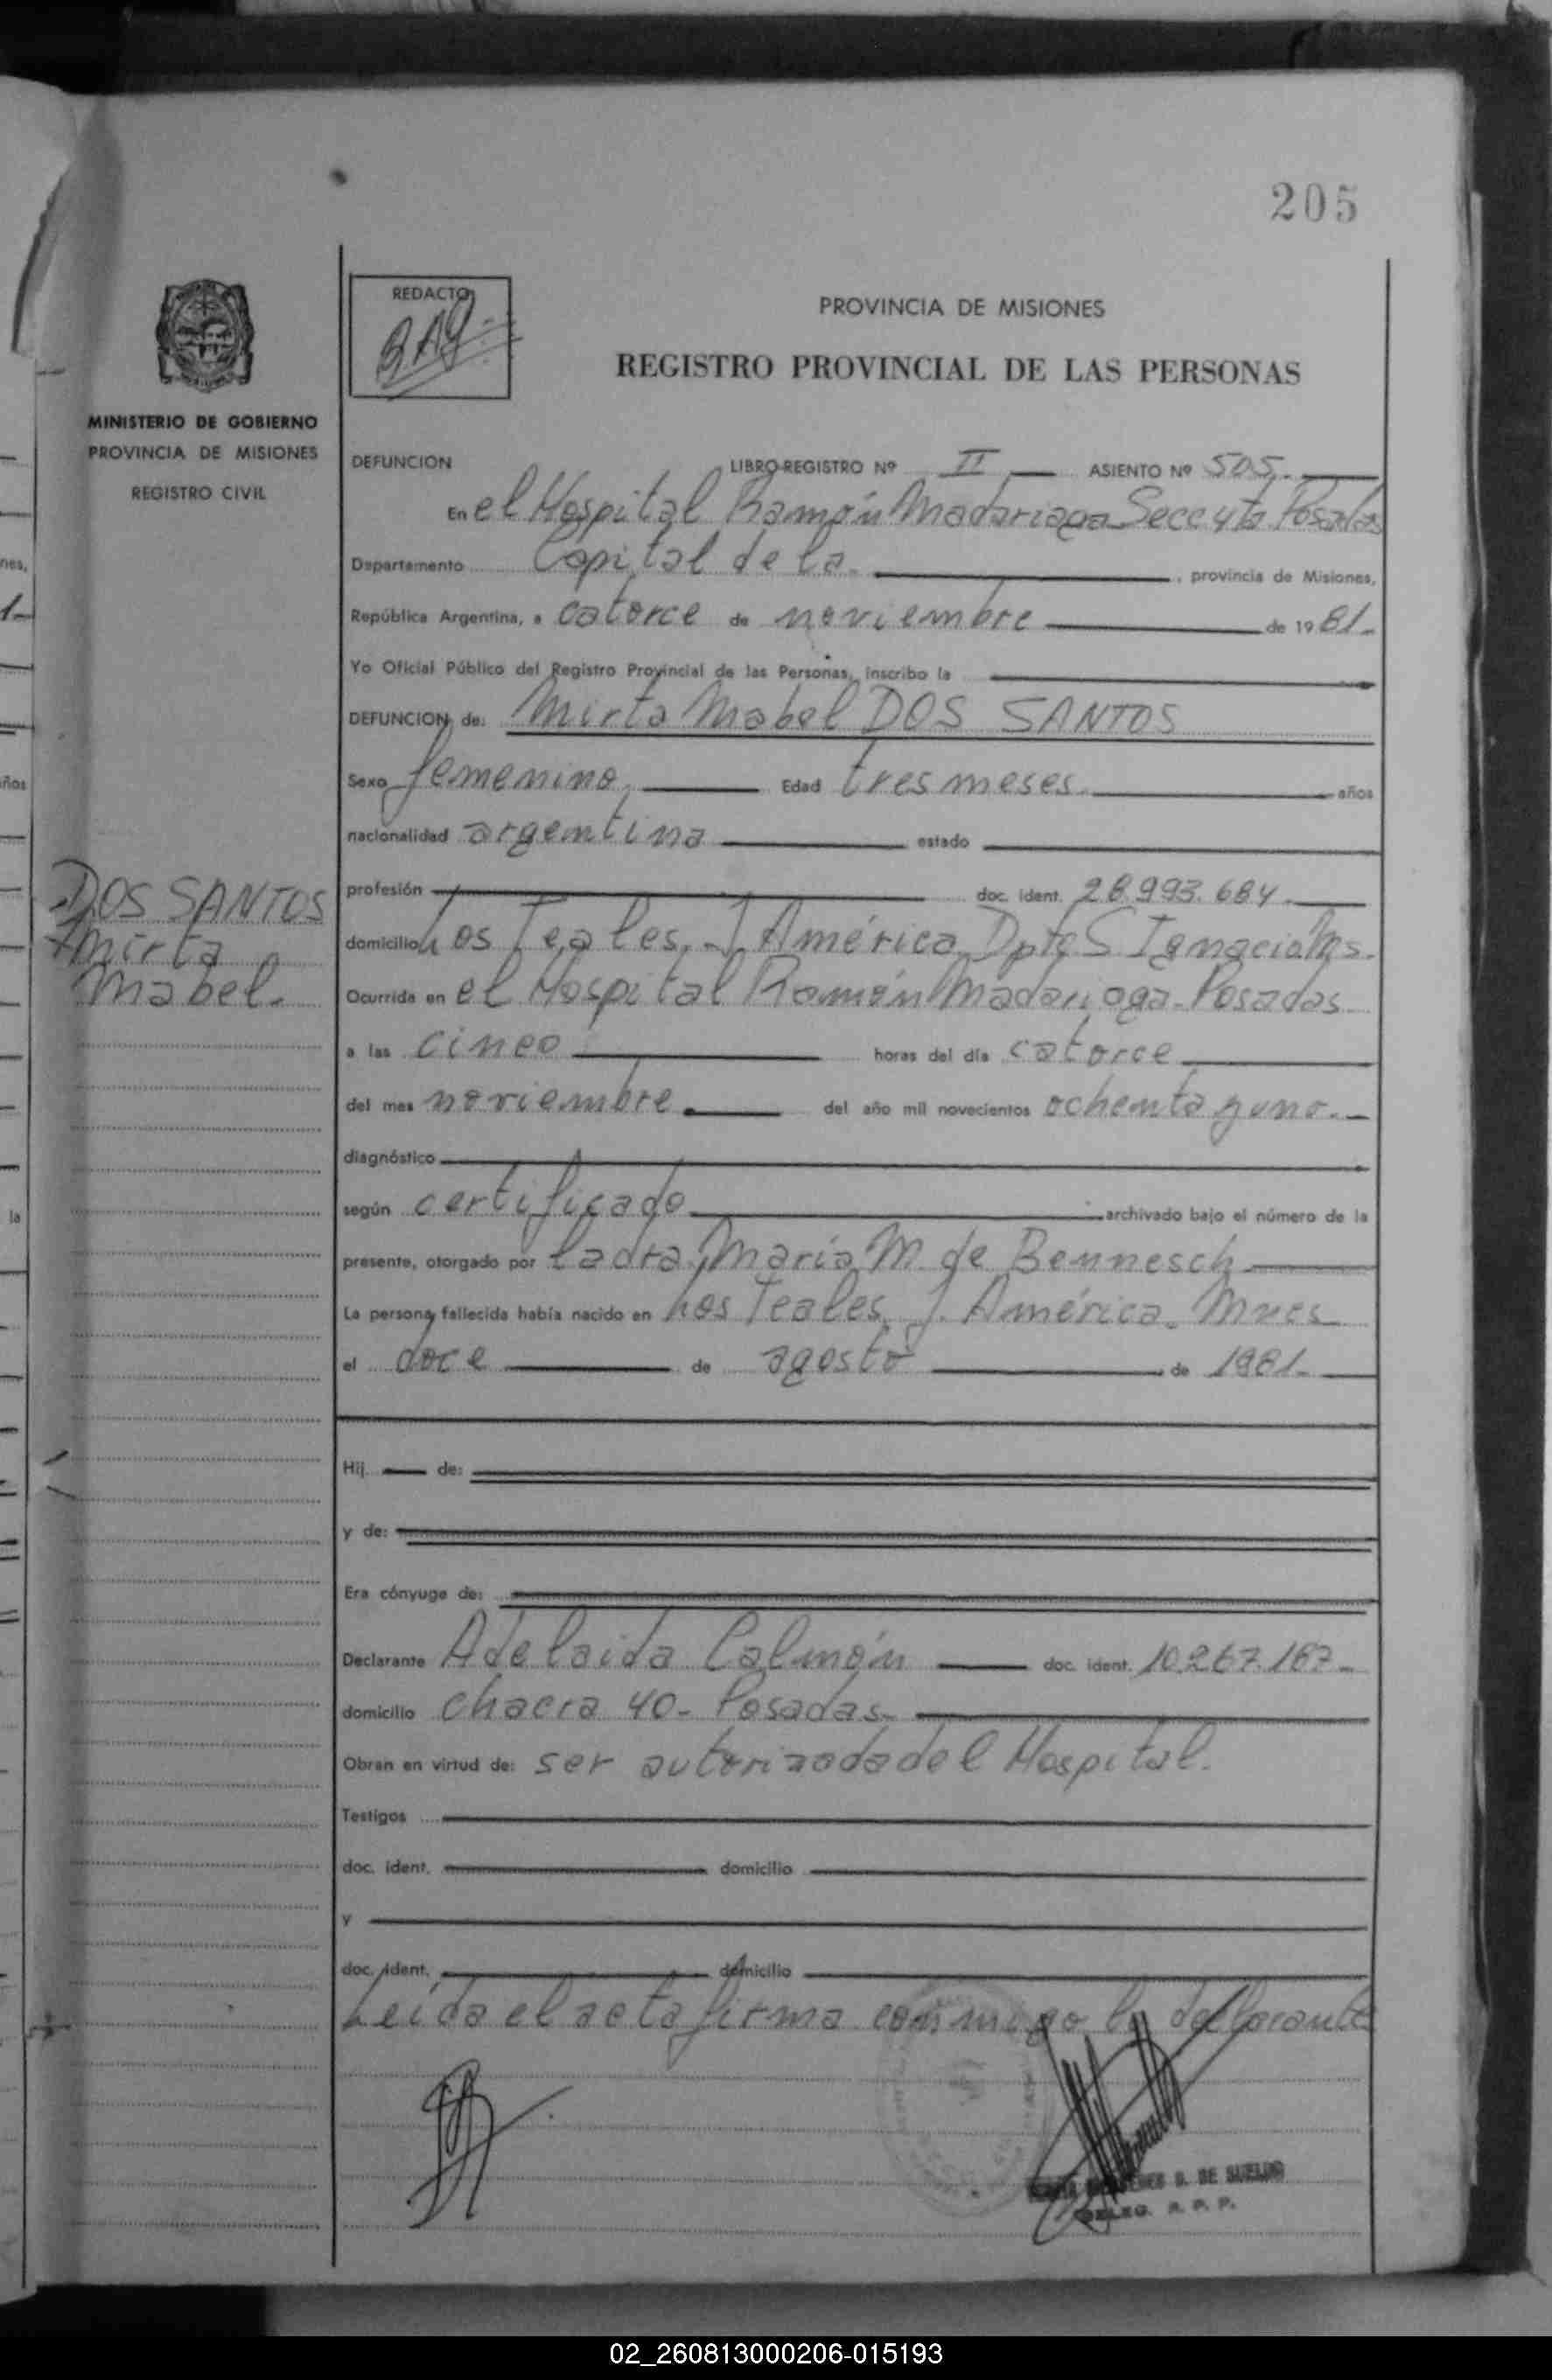 205
REDACTO
PROVINCIA DE MISIONES
REGISTRO PROVINCIAL DE LAS PERSONAS
MINISTERIO DE GOBIERNO
PROVINCIA DE MISIONES
REGISTRO CIVIL
DEFUNCION LIBRO-REGISTRO Nº II ASIENTO Nº 505.
En el Hospital Ramón Madariaga Secc 4ta Posadas
Departamento Capital de la , provincia de Misiones,
República Argentina, a catorce de noviembre de 1981.
Yo Oficial Público del Registro Provincial de las Personas, inscribo la
DEFUNCION de: Mirta Mabel DOS SANTOS
Sexo femenino, Edad tres meses. años
nacionalidad argentina estado
DOS SANTOS
Mirta
Mabel.
profesión doc. ident. 28.993.684.
domicilio Los Teales. J. América Dpto S Ignacio Ms.
Ocurrida en el Hospital Ramón Madariaga. Posadas
a las cinco horas del día catorce
del mes noviembre. del año mil novecientos ochenta y uno.
diagnóstico
según certificado archivado bajo el número de la
presente, otorgado por la dra. María M. de Bennesch
La persona fallecida había nacido en Los Teales J. América. Mnes
el doce de agosto de 1981.
Hij de:
y de:
Era cónyuge de:
Declarante Adelaida Calmón doc. ident. 10.267.167
domicilio chacra 40- Posadas.
Obran en virtud de: ser autorizada del Hospital.
Testigos
doc. ident. domicilio
y
doc. ident. domicilio
Leída el acta firma conmigo la declarante
D. DE SUELDO
DELEG. R. P. P.
02_260813000206-015193